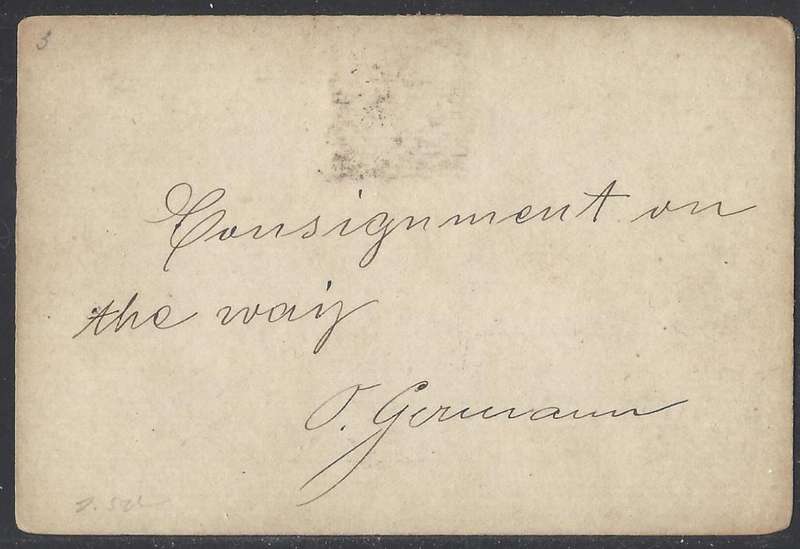 3
Consignment on
the way
O. Germann